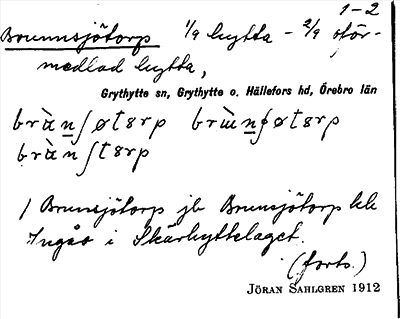 1-2
Brunnsjötorp 1/9 hytta - 2/9 oför-
medlad hytta,
Grythytte sn, Grythytte o. Hällefors hd, Örebro län
brὰn̲ʃøtɵrp brɯ̀n̲ʃøtɵrp
brὰnʃtɵrp
1 Brunsjötorp jb Brunsjötorp kk
Ingås i Skärhyttelaget.
(forts.)
JÖRAN SAHLGREN 1912